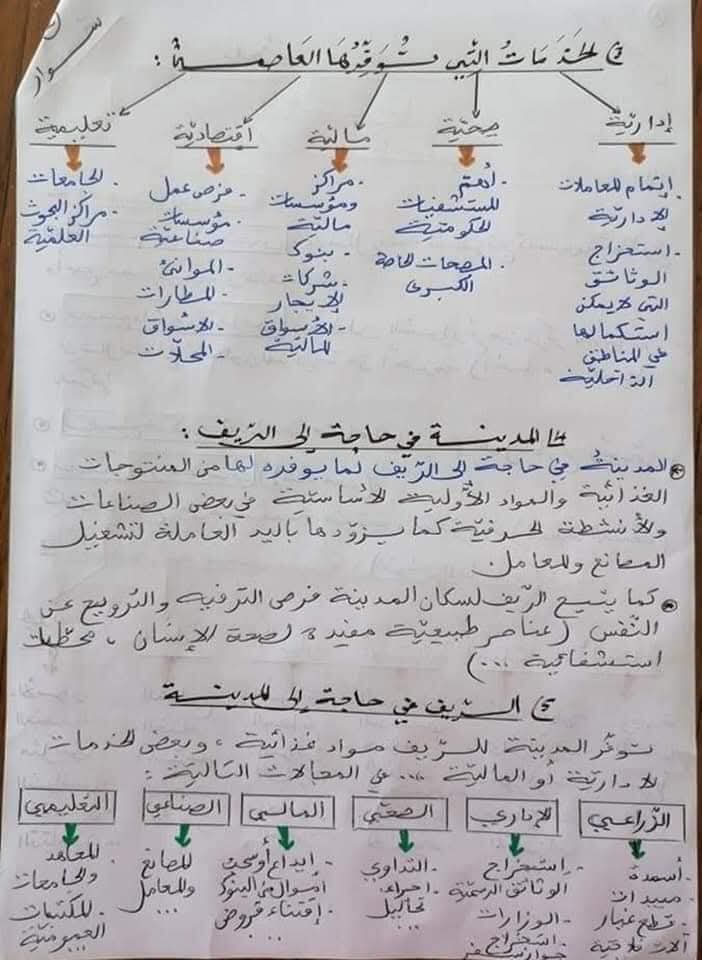 سوار
الخدمات التي توفرها العاصمة :
إدارية
صحية
مالية
اقتصادية
تعليمية
إتمام المعاملات
الإدارية
- استخراج
الوثائق
التي لا يمكن
استكمالها
في المناطق
الداخلية
- أهم
المستشفيات
الحكومية
- المصحات الخاصة
الكبرى
- مراكز
ومؤسسات
مالية
- بنوك
- شركات
الإيجار
- الأسواق
المالية
- فرص عمل
- مؤسسات
صناعية
- الموانئ
- المطارات
- الأسواق
- المحلات
- الجامعات
- مراكز البحوث
العلمية
المدينة في حاجة إلى الريف :
المدينة في حاجة إلى الريف لما يوفره لها من المنتوجات
الغذائية والمواد الأولية الأساسية في بعض الصناعات
والأنشطة الحرفية كما يزودها باليد العاملة لتشغيل
المصانع والمعامل.
كما يتيح الريف لسكان المدينة فرص الترفيه والترويح عن
النفس (عناصر طبيعية مفيدة لصحة الإنسان ، محطات
استشفائية ...)
الريف في حاجة إلى المدينة
توفر المدينة للريف مواد غذائية ، وبعض الخدمات
الإدارية أو المالية ... في المجالات التالية :
الزراعي
الإداري
الصحي
المالي
الصناعي
التعليمي
- أسمدة
- مبيدات
- قطع غيار
آلات فلاحية
- استخراج
الوثائق الرسمية
- الوزارات
- استخراج
جواز سفر
- التداوي
- إجراء
تحاليل
- إيداع أو سحب
أموال من البنوك
- إقتناء قروض
...
- المصانع
والمعامل
...
- المعاهد
والجامعات
- المكتبات
العمومية